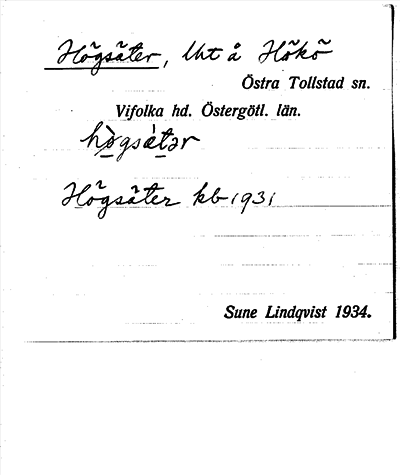 Högsäter, Uht å Hökö
Östra Tollstad sn.
Vifolka hd. Östergötl. län.
hògsétər
Högsäter kb 1931
Sune Lindqvist 1934.